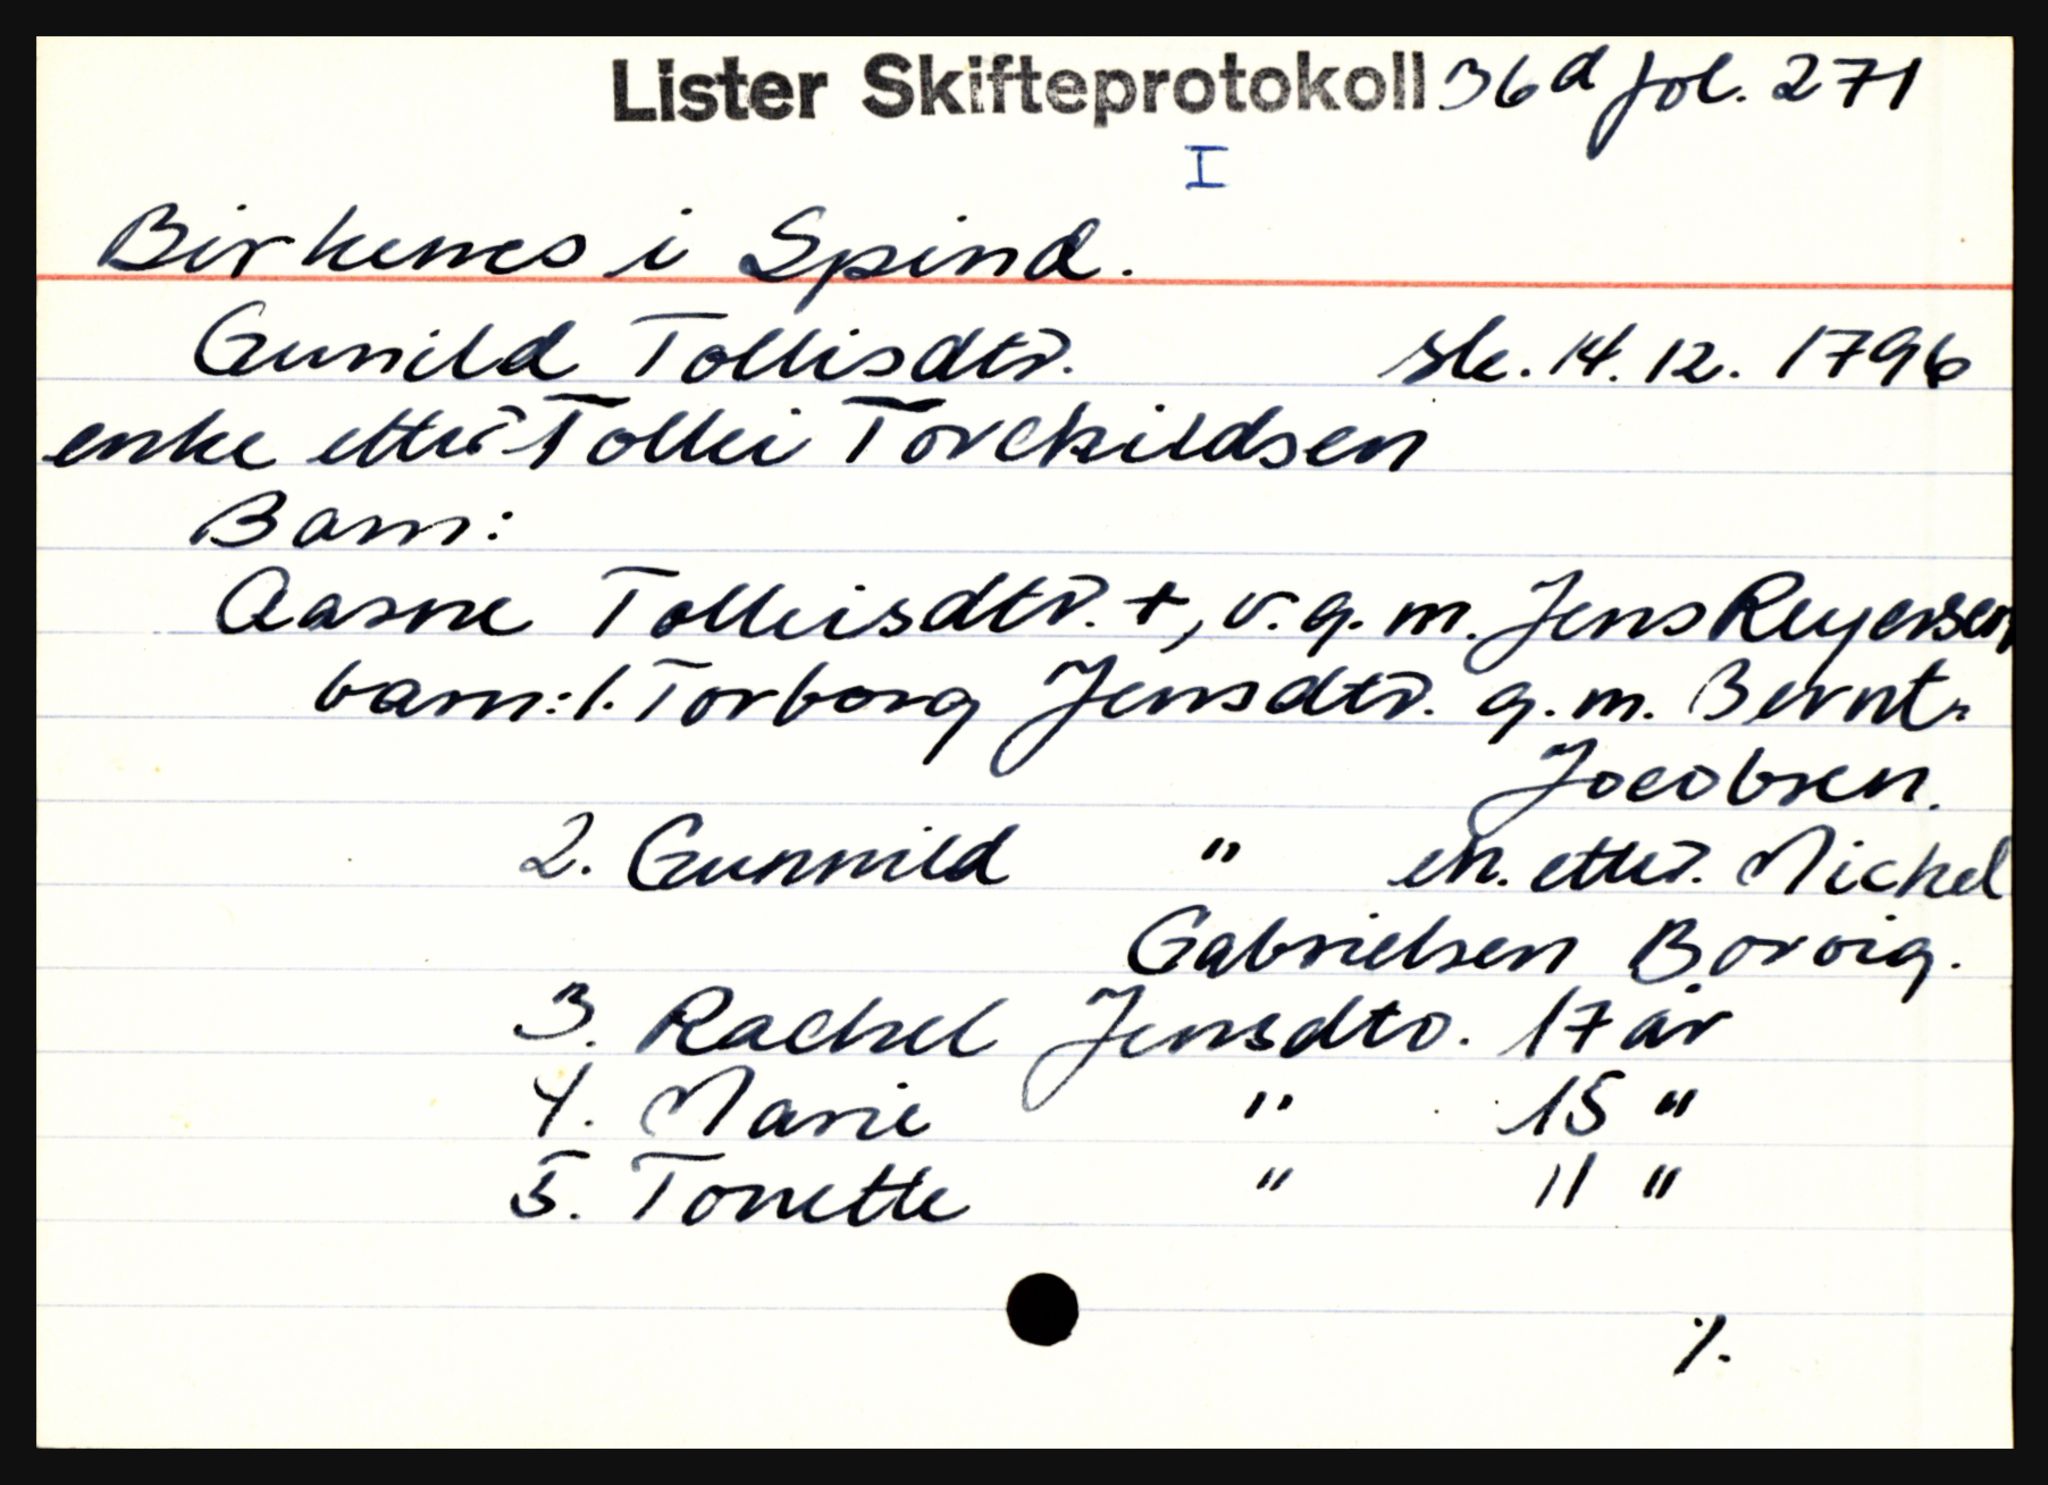 Lister Skifteprotokoll 36d fol. 271
I
Birkenes i Spind.
Gunild Tollisdtr. sk. 14.12.1796
enke etter Tollei Torchildsen
Barn:
Aasne Tolleisdtr. +, v. g. m. Jens Reyersen,
barn: 1. Torborg Jensdtr. g. m. Bernt
Jocobsen.
2. Gunnild " en. etter. Michel
Gabrielsen Borvig.
3. Rachel Jensdtr. 17 år
4. Marie " 15 "
5. Tonette " 11 "
%.